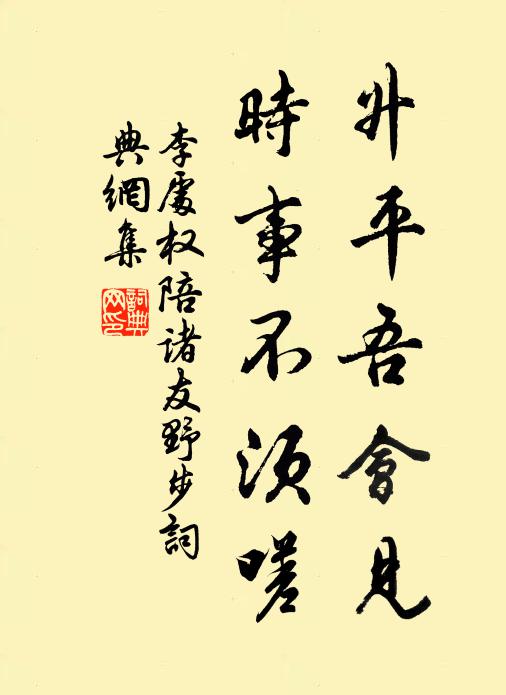 升平吾會見
時事不須嗟
李處权陪诸友野步詞
典網集
詞典
网印